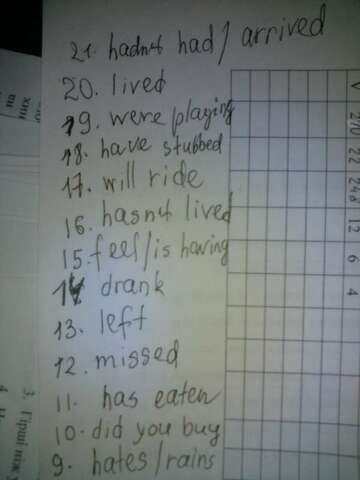 21. hadn't had / arrived
20. lived
19. were/playing
18. have stubbed
17. will ride
16. hasn't lived
15. feel/is having
14 drank
13. left
12. missed
11. has eaten
10. did you buy
9. hates/rains
3. Гірші ніж
4.
V 270 22 248 12 6 4